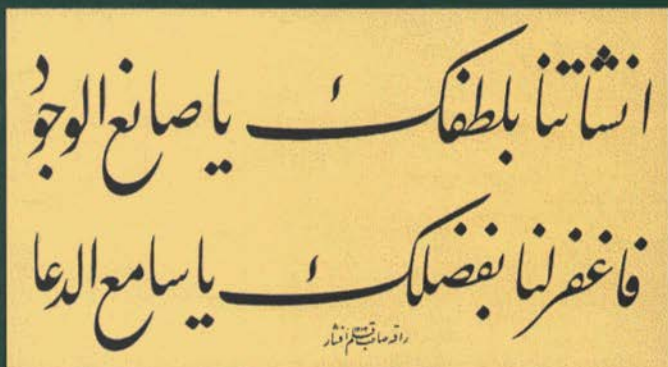 انشاتنا بلطفك یا صانع الوجود
فاغفر لنا بفضلک یا سامع الدعا
راقمه صاحبقلم افشار